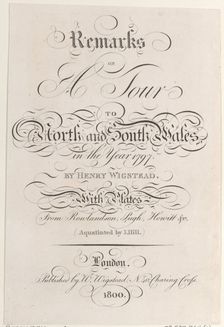 Remarks
ON
A Tour
TO
North and South Wales,
in the Year 1797.
BY HENRY WIGSTEAD.
With Plates
From Rowlandson, Pugh, Howitt &c.
(Aquatinted by J. Hill.
London.
Published by W. Wigstead No. 40 Charing Cross
1800.